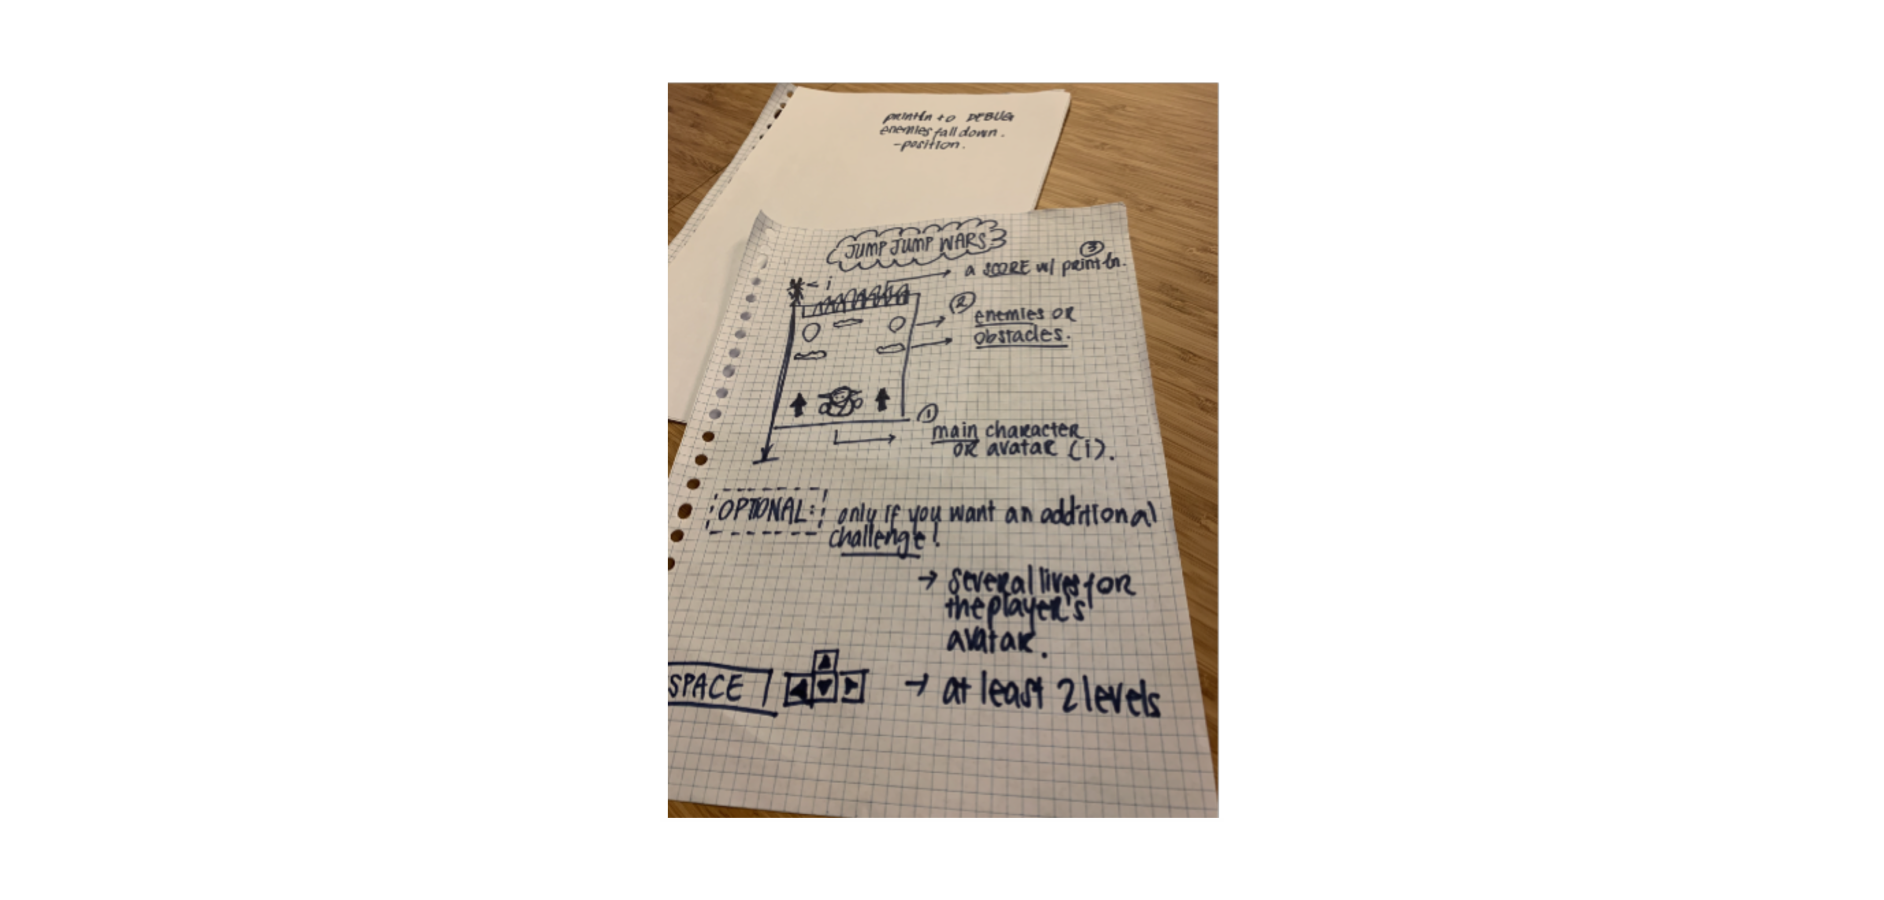 println to DEBUG
enemies fall down.
-position.
JUMP JUMP WARS
③
a SCORE w/ println.
< i
②
enemies OR
obstacles.
①
main character
OR avatar (i).
OPTIONAL: only if you want an additional
challenge!
→ several lives for
the player's
avatar.
SPACE
→ at least 2 levels